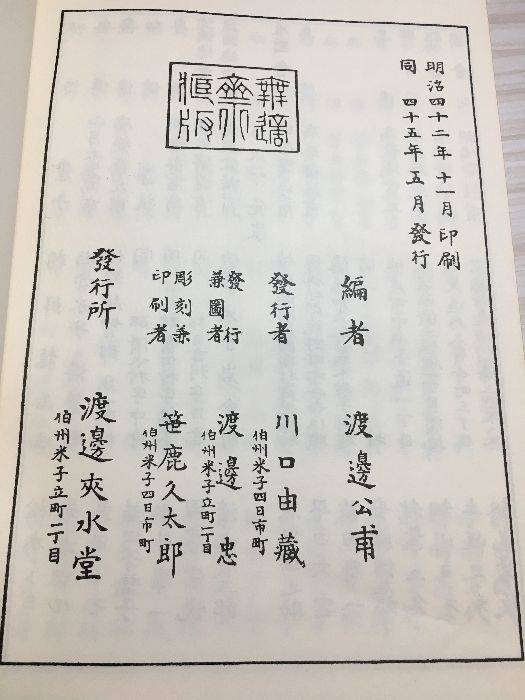 明治四十二年十一月印刷
同 四十五年五月發行
無適
齋
版
編者 渡邊公甫
發行者 川口由藏
伯州米子四日市町
發行
兼圖者 渡邊忠
伯州米子立町一丁目
彫刻兼
印刷者 笹鹿久太郎
伯州米子四日市町
發行所 渡邊夾水堂
伯州米子立町一丁目